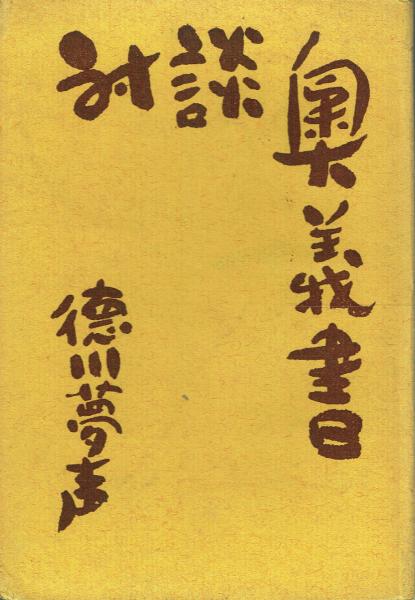 対談
奥義書
徳川夢声